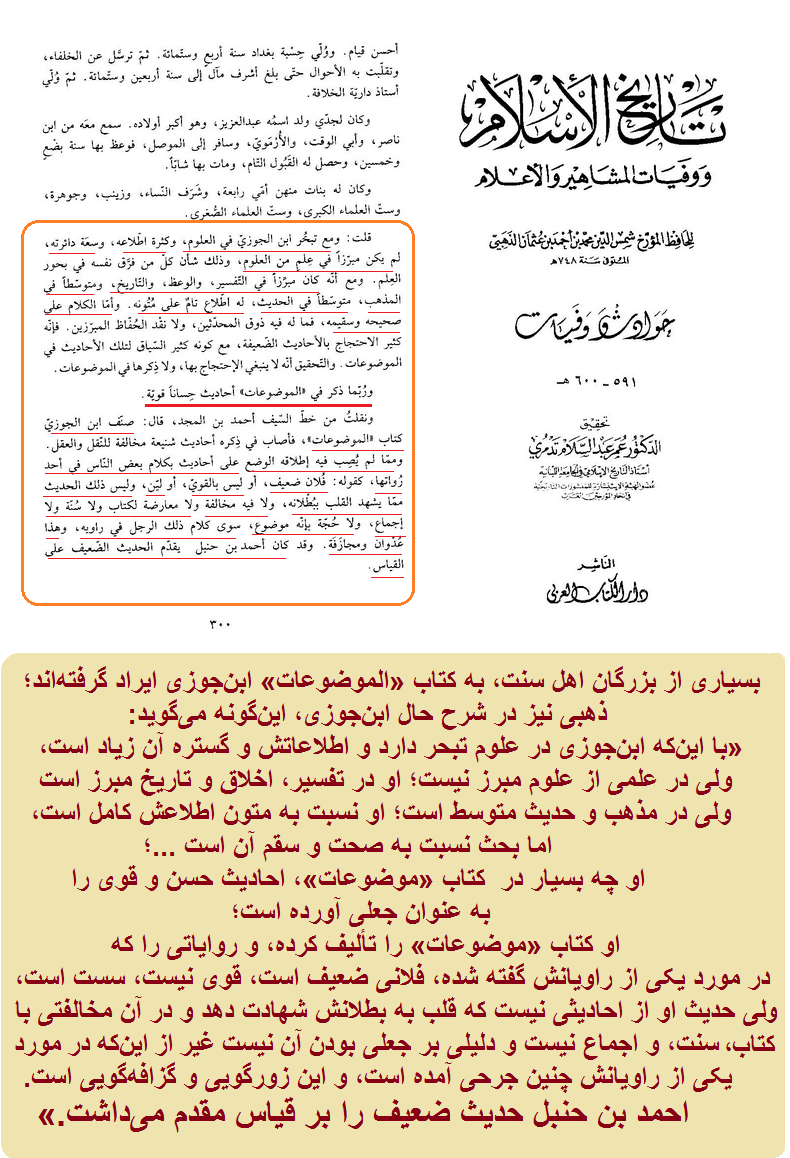 أحسن قيام. ووُلّي حِسْبة بغداد سنة أربع وستّمائة. ثمّ ترسَّل عن الخلفاء،
وتقلّبت به الأحوال حتّى بلغ أشرف مآل إلى سنة أربعين وستّمائة. ثمّ وُلّي
أستاذ داريّة الخلافة.
وكان لجدّي ولد اسمُه عبدالعزيز، وهو أكبر أولاده. سمع معَه من ابن
ناصر، وأبي الوقت، والأُرْمَويّ، وسافر إلى الموصل، فوعظ بها سنة بضْعٍ
وخمسين، وحصل له القَبُول التّام، ومات بها شابّاً.
وكان له بنات منهن أمّي رابعة، وشَرَف النّساء، وزينب، وجوهرة،
وستّ العلماء الكبرى، وستّ العلماء الصُّغرى.
قلت: ومع تبحُّر ابن الجوزيّ في العلوم، وكثرة اطّلاعه، وسعَة دائرته،
لم يكن مبرّزاً في عِلمٍ من العلوم، وذلك شأن كلّ من فرَّق نفسه في بحور
العِلم. ومع أنّه كان مبرّزاً في التّفسير، والوعظ، والتّاريخ، ومتوسّطاً في
المذهب، متوسّطاً في الحديث، له اطّلاع تامّ على مُتُونه. وأمّا الكلام على
صحيحه وسقيمه، فما له فيه ذوق المحدّثين، ولا نقْد الحُفّاظ المبرّزين. فإنّه
كثير الاحتجاج بالأحاديث الضّعيفة، مع كونه كثير السّياق لتلك الأحاديث في
الموضوعات. والتّحقيق أنّه لا ينبغي الإحتجاج بها، ولا ذِكرها في الموضوعات.
ورُبّما ذكر في «الموضوعات» أحاديث حِساناً قويّة.
ونقلتُ من خطّ السّيف أحمد بن المجد، قال: صنّف ابن الجوزيّ
كتاب «الموضوعات»، فأصاب في ذِكره أحاديث شنيعة مخالفة للنّقل والعقل.
وممّا لم يُصِب فيه إطلاقه الوضع على أحاديث بكلام بعض النّاس في أحد
رُواتها، كقوله: فُلان ضعيف، أو ليس بالقويّ، أو ليّن، وليس ذلك الحديث
ممّا يشهد القلب ببُطْلانه، ولا فيه مخالفة ولا معارضة لكتاب ولا سُنّة ولا
إجماع، ولا حُجّة بإنّه موضوع، سوى كلام ذلك الرجل في راويه، وهذا
عُدْوان ومجازَفَة. وقد كان أحمد بن حنبل يقدّم الحديث الضّعيف على
القياس.
٣٠٠
تاريخ الإسلام
ووفيات المشاهير والأعلام
للحافظ المؤرخ شمس الدين محمد بن أحمد بن عثمان الذهبي
المتوفى سنة ٧٤٨ هـ
حوادث ووفيات
٥٩١ - ٦٠٠ هـ
تحقيق
الدكتور عمر عبد السلام تدمري
أستاذ التاريخ الإسلامي في الجامعة اللبنانية
الناشر
دار الكتاب العربي
بسیاری از بزرگان اهل سنت، به کتاب «الموضوعات» ابن‌جوزی ایراد گرفته‌اند؛
ذهبی نیز در شرح حال ابن‌جوزی، این‌گونه می‌گوید:
«با این‌که ابن‌جوزی در علوم تبحر دارد و اطلاعاتش و گستره آن زیاد است،
ولی در علمی از علوم مبرز نیست؛ او در تفسیر، اخلاق و تاریخ مبرز است
ولی در مذهب و حدیث متوسط است؛ او نسبت به متون اطلاعش کامل است،
اما بحث نسبت به صحت و سقم آن است ...؛
او چه بسیار در کتاب «موضوعات»، احادیث حسن و قوی را
به عنوان جعلی آورده است؛
او کتاب «موضوعات» را تألیف کرده، و روایاتی را که
در مورد یکی از راویانش گفته شده، فلانی ضعیف است، قوی نیست، سست است،
ولی حدیث او از احادیثی نیست که قلب به بطلانش شهادت دهد و در آن مخالفتی با
کتاب، سنت، و اجماع نیست و دلیلی بر جعلی بودن آن نیست غیر از این‌که در مورد
یکی از راویانش چنین جرحی آمده است، و این زورگویی و گزافه‌گویی است.
احمد بن حنبل حدیث ضعیف را بر قیاس مقدم می‌داشت.»